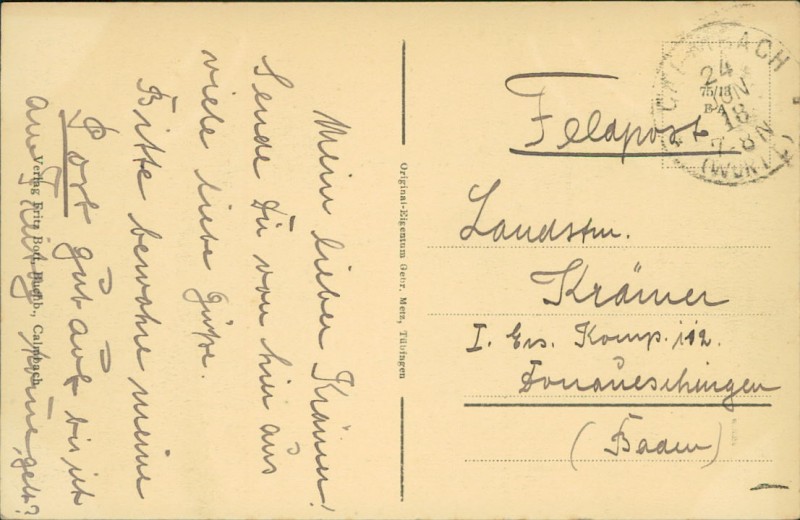 Mein lieber Krämer!
Sende Dir von hier aus
viele liebe Grüße.
Bitte bewahre meine
Post gut auf bis ich
am Freitag komme, gelt?
Verlag Fritz Bott, Buchb., Calmbach.
Original-Eigentum Gebr. Metz, Tübingen
CALMBACH
24 JUN 18
7-8 N
(WÜRTT.)
75/18
B-A
Feldpost
Landstm.
Krämer
I. Ers. Komp. 112.
Donaueschingen
(Baden)